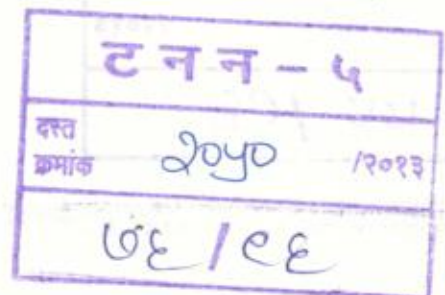 ट न न - ५
दस्त
क्रमांक २०५० /२०१३
७६ / ९६